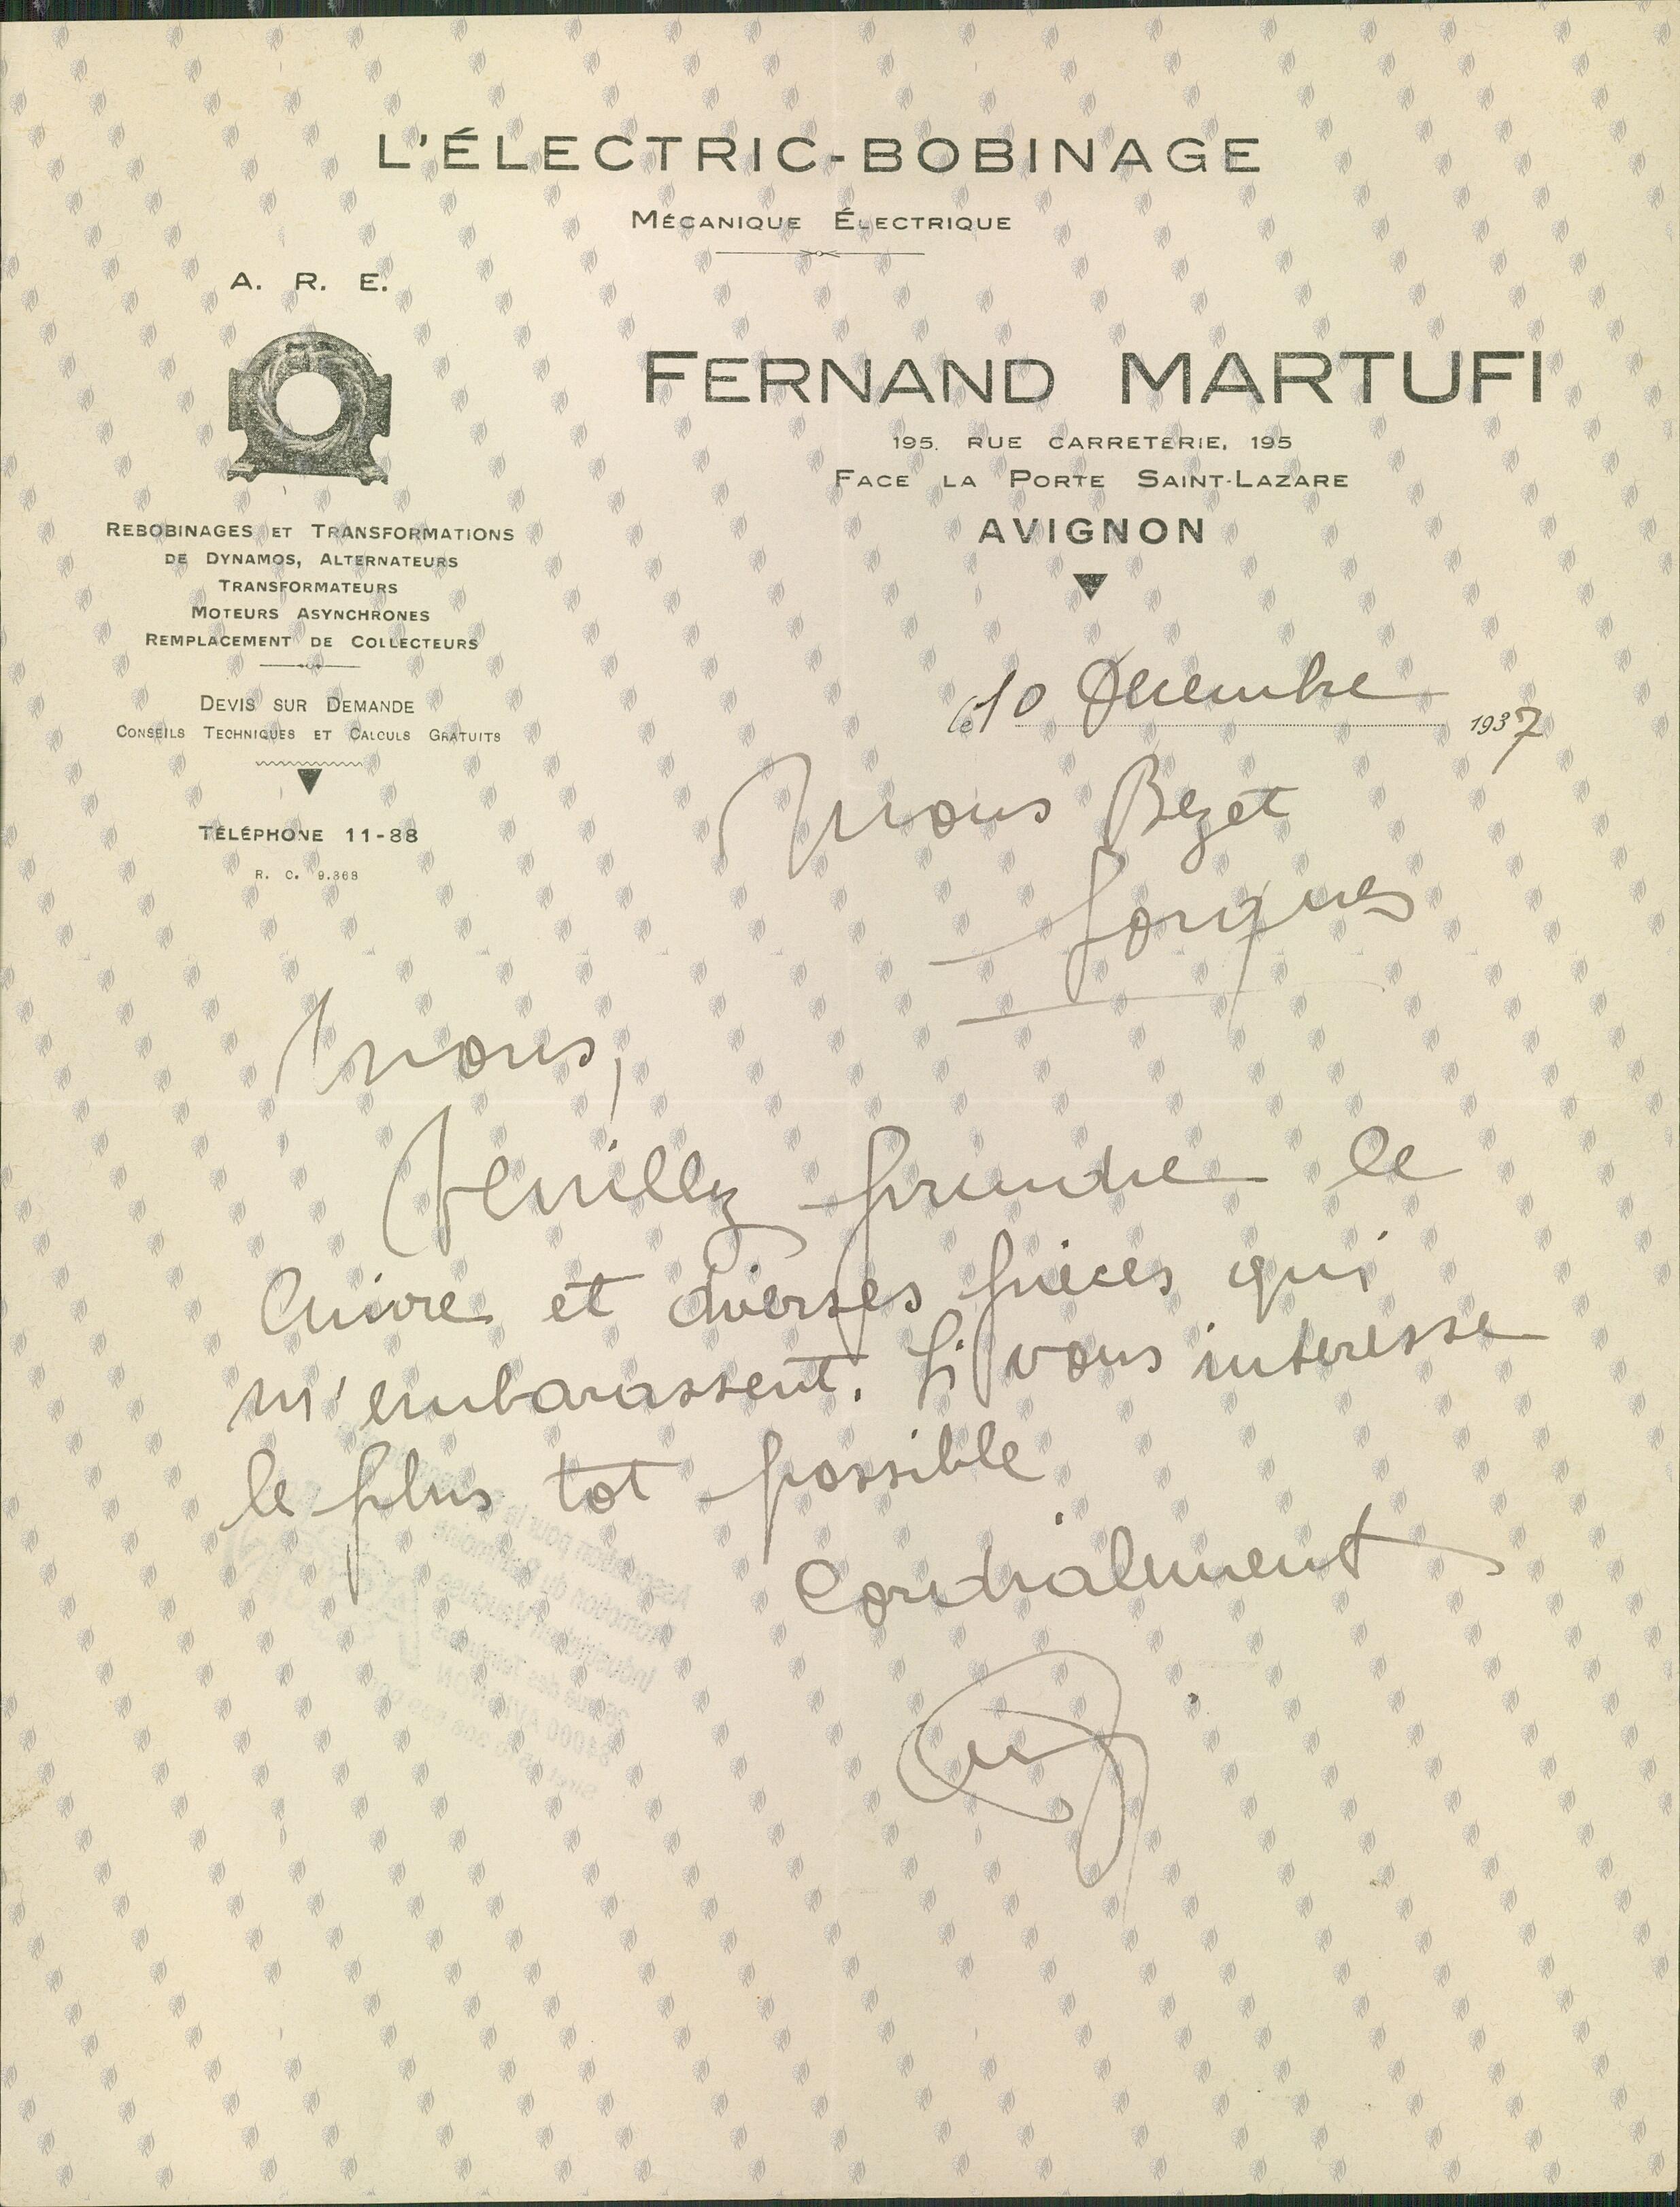 L'ÉLECTRIC-BOBINAGE
MÉCANIQUE ÉLECTRIQUE
A. R. E.
FERNAND MARTUFI
195, RUE CARRETERIE, 195
FACE LA PORTE SAINT-LAZARE
AVIGNON
REBOBINAGES ET TRANSFORMATIONS
DE DYNAMOS, ALTERNATEURS
TRANSFORMATEURS
MOTEURS ASYNCHRONES
REMPLACEMENT DE COLLECTEURS
DEVIS SUR DEMANDE
CONSEILS TECHNIQUES ET CALCULS GRATUITS
TÉLÉPHONE 11-88
R. C. 9.368
le 10 Décembre 1937
Mons Bezet
Sorgues
Mons,
Veuillez prendre le
Cuivre et diverses pièces qui
m'embarassent. Si vous interesse
le plus tot possible
Cordialement
Association pour la
Promotion du Patrimoine
Industriel en Vaucluse
rue des Teinturiers
84000 AVIGNON